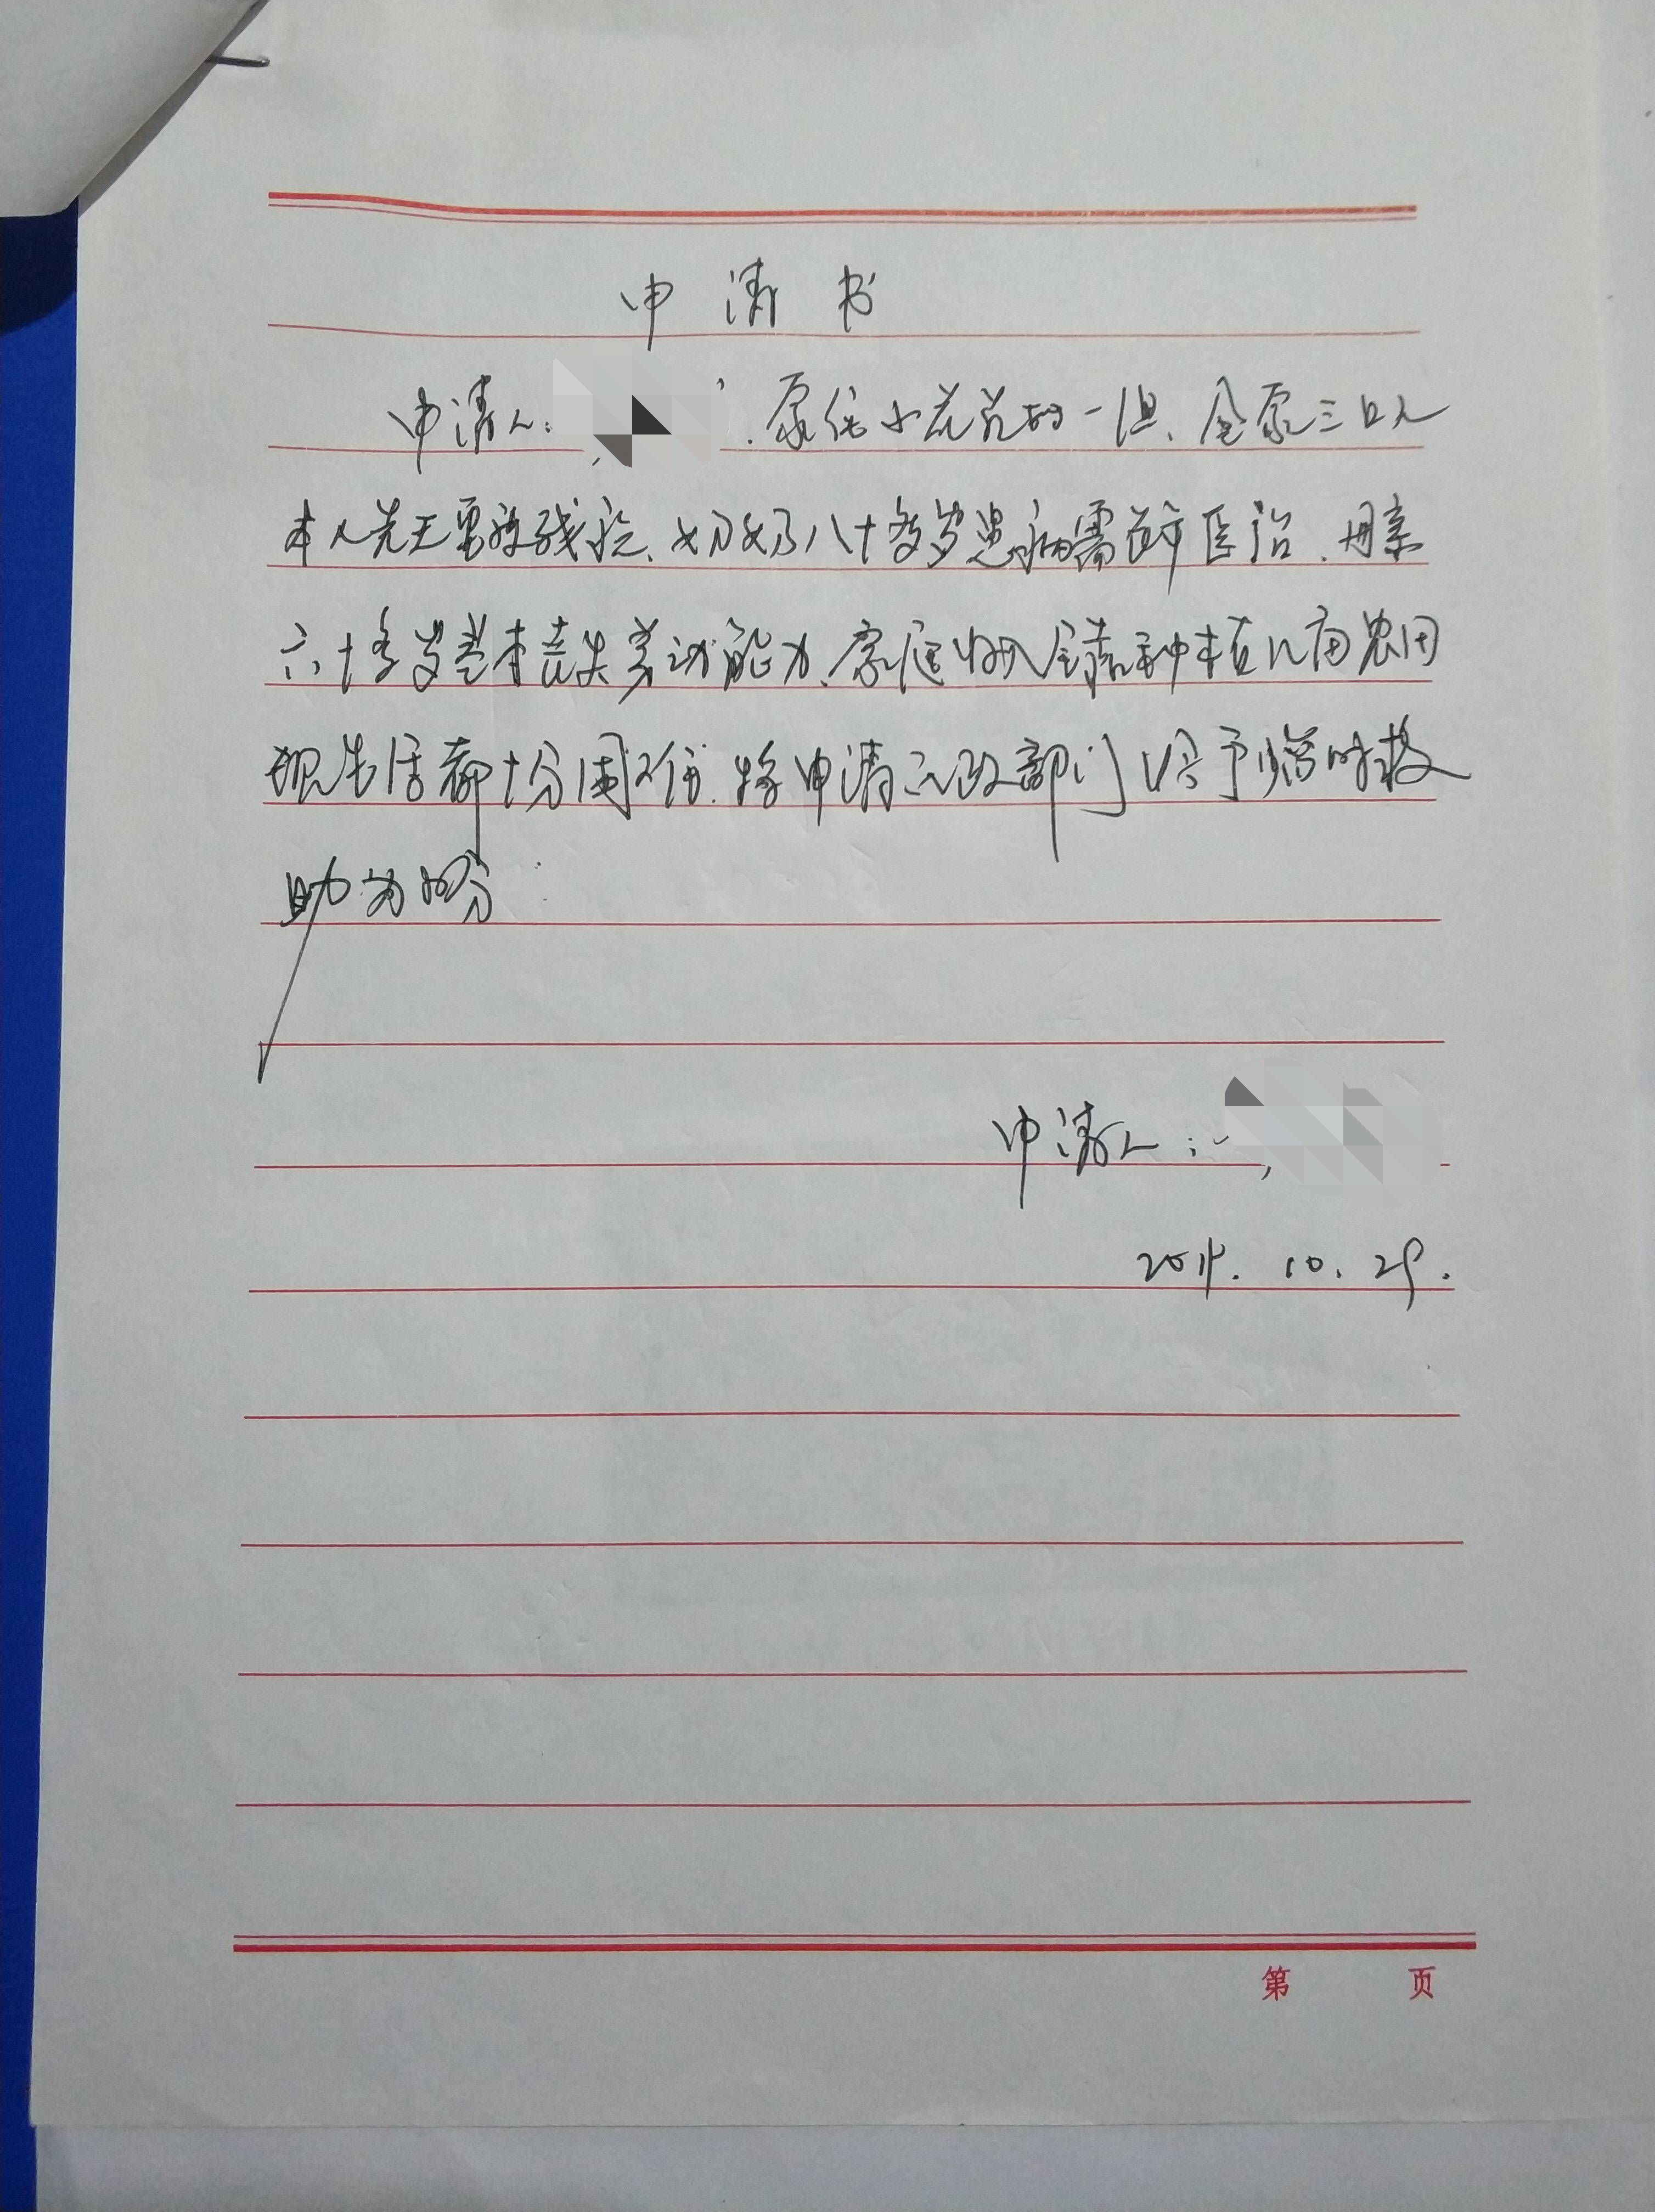 申请书
申请人: 家住小花苑村一组、全家三口人
本人先天重残、奶奶八十多岁患病需要医治、母亲
六十多岁基本丧失劳动能力、家庭收入全靠种植几亩农田
现生活都十分困难. 特申请民政部门给予临时救
助为盼
申请人:
10.29.
第 页